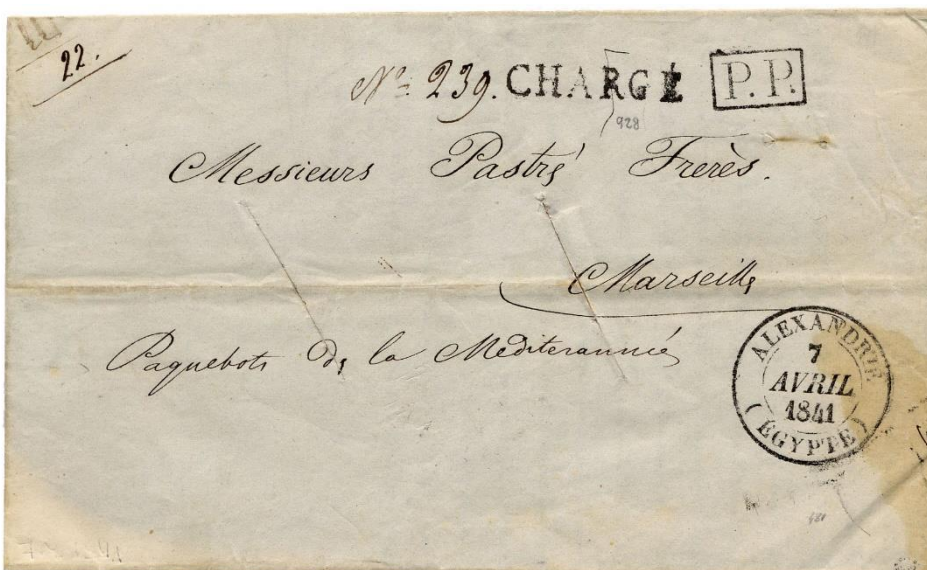 22.
Nº 239. CHARGÉ P.P.
928
Messieurs Pastré Frères.
Marseille
Paquebots de la Mediterannée
ALEXANDRIE
7
AVRIL
1841
(EGYPTE)